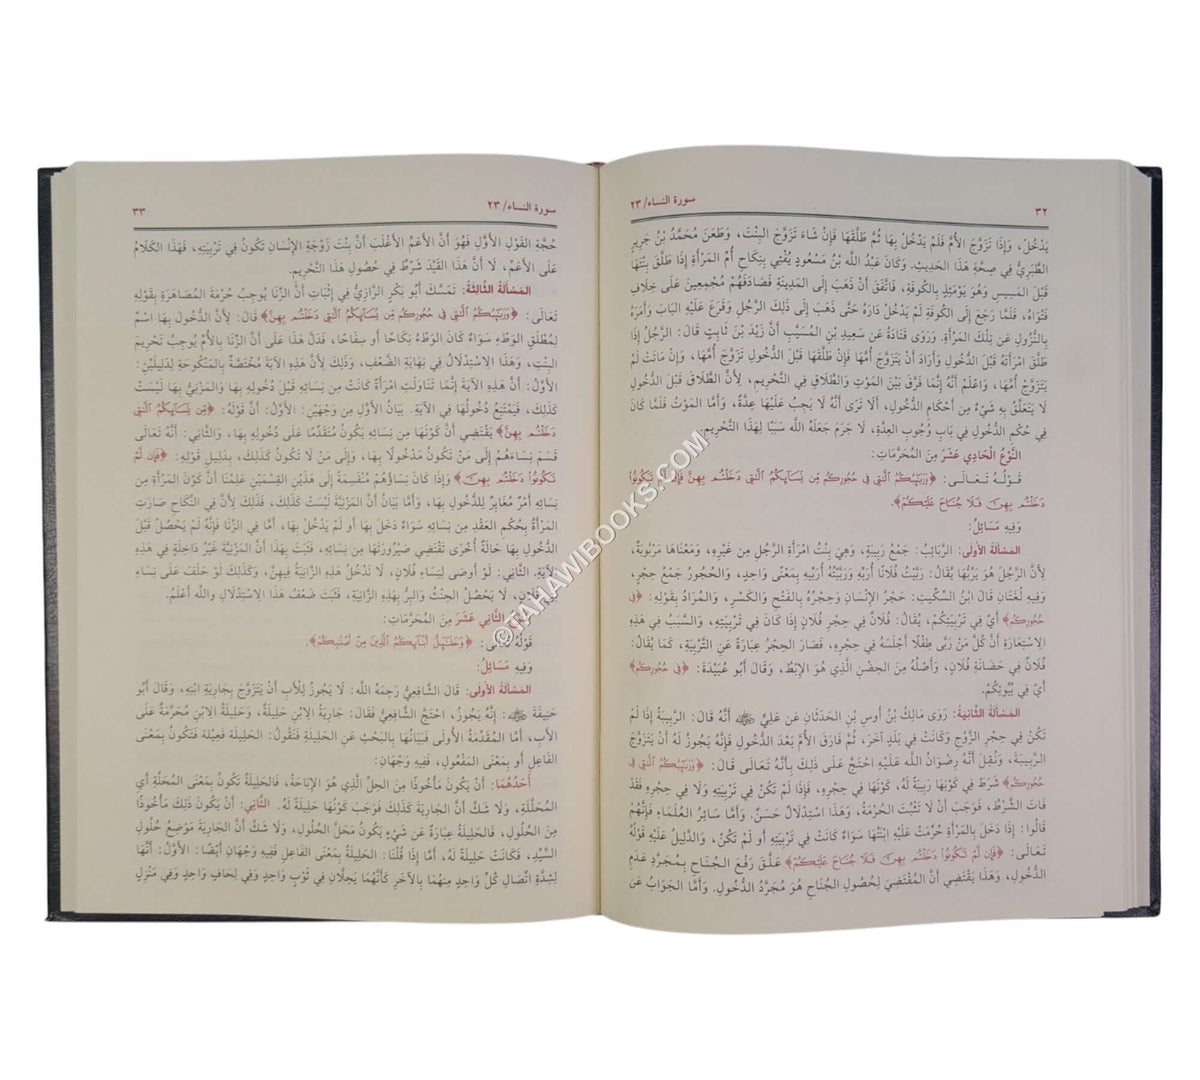 ٣٢ سورة النساء/ ٢٣
يَدْخُلْ، وَإِذَا تَزَوَّجَ الأُمَّ فَلَمْ يَدْخُلْ بِهَا ثُمَّ طَلَّقَهَا فَإِنْ شَاءَ تَزَوَّجَ البِنْتَ، وَطَعَنَ مُحَمَّدُ بْنُ جَرِيرٍ
الطَّبَرِيُّ فِي صِحَّةِ هَذَا الحَدِيثِ. وَكَانَ عَبْدُ اللَّه بْنُ مَسْعُودٍ يُفْتِي بِنِكَاحِ أُمِّ المَرْأَةِ إِذَا طَلَّقَ بِنْتَهَا
قَبْلَ المَسِيسِ وَهُوَ يَوْمَئِذٍ بِالكُوفَةِ، فَاتَّفَقَ أَنْ ذَهَبَ إِلَى المَدِينَةِ فَصَادَفَهُمْ مُجْمِعِينَ عَلَى خِلَافِ
فَتْوَاهُ، فَلَمَّا رَجَعَ إِلَى الكُوفَةِ لَمْ يَدْخُلْ دَارَهُ حَتَّى ذَهَبَ إِلَى ذَلِكَ الرَّجُلِ وَقَرَعَ عَلَيْهِ البَابَ وَأَمَرَهُ
بِالنُّزُولِ عَنْ تِلْكَ المَرْأَةِ. وَرَوَى قَتَادَةُ عَنْ سَعِيدِ بْنِ المُسَيَّبِ أَنَّ زَيْدَ بْنَ ثَابِتٍ قَالَ: الرَّجُلُ إِذَا
طَلَّقَ امْرَأَتَهُ قَبْلَ الدُّخُولِ وَأَرَادَ أَنْ يَتَزَوَّجَ أُمَّهَا فَإِنْ طَلَّقَهَا قَبْلَ الدُّخُولِ تَزَوَّجَ أُمَّهَا، وَإِنْ مَاتَتْ لَمْ
يَتَزَوَّجْ أُمَّهَا، وَاعْلَمْ أَنَّهُ إِنَّمَا فَرَّقَ بَيْنَ المَوْتِ وَالطَّلَاقِ فِي التَّحْرِيمِ، لِأَنَّ الطَّلَاقَ قَبْلَ الدُّخُولِ
لَا يَتَعَلَّقُ بِهِ شَيْءٌ مِنْ أَحْكَامِ الدُّخُولِ، أَلَا تَرَى أَنَّهُ لَا يَجِبُ عَلَيْهَا عِدَّةٌ، وَأَمَّا المَوْتُ فَلَمَّا كَانَ
فِي حُكْمِ الدُّخُولِ فِي بَابِ وُجُوبِ العِدَّةِ، لَا جَرَمَ جَعَلَهُ اللَّه سَبَبًا لِهَذَا التَّحْرِيمِ.
النَّوْعُ الحَادِي عَشَرَ مِنَ المُحَرَّمَاتِ:
قَوْلُهُ تَعَالَى: ﴿وَرَبَٰٓئِبُكُمُ ٱلَّٰتِي فِي حُجُورِكُم مِّن نِّسَآئِكُمُ ٱلَّٰتِي دَخَلْتُم بِهِنَّ فَإِن لَّمْ تَكُونُوا۟
دَخَلْتُم بِهِنَّ فَلَا جُنَاحَ عَلَيْكُمْ﴾.
وَفِيهِ مَسَائِلُ:
المَسْأَلَةُ الأُولَى: الرَّبَائِبُ: جَمْعُ رَبِيبَةٍ، وَهِيَ بِنْتُ امْرَأَةِ الرَّجُلِ مِنْ غَيْرِهِ، وَمَعْنَاهَا مَرْبُوبَةٌ،
لِأَنَّ الرَّجُلَ هُوَ يَرُبُّهَا يُقَالُ: رَبَّيْتُ فُلَانًا أُرَبِّيهِ وَرَبَّبْتُهُ أُرَبِّبُهُ بِمَعْنًى وَاحِدٍ، وَالحُجُورُ جَمْعُ حِجْرٍ،
وَفِيهِ لُغَتَانِ قَالَ ابْنُ السِّكِّيتِ: حَجْرُ الإِنْسَانِ وَحِجْرُهُ بِالفَتْحِ وَالكَسْرِ، وَالمُرَادُ بِقَوْلِهِ: ﴿فِي
حُجُورِكُم﴾ أَيْ فِي تَرْبِيَتِكُمْ، يُقَالُ: فُلَانٌ فِي حِجْرِ فُلَانٍ إِذَا كَانَ فِي تَرْبِيَتِهِ، وَالسَّبَبُ فِي هَذِهِ
الِاسْتِعَارَةِ أَنَّ كُلَّ مَنْ رَبَّى طِفْلًا أَجْلَسَهُ فِي حِجْرِهِ، فَصَارَ الحِجْرُ عِبَارَةً عَنِ التَّرْبِيَةِ، كَمَا يُقَالُ:
فُلَانٌ فِي حَضَانَةِ فُلَانٍ، وَأَصْلُهُ مِنَ الحِضْنِ الَّذِي هُوَ الإِبْطُ، وَقَالَ أَبُو عُبَيْدَةَ: ﴿فِي حُجُورِكُم﴾
أَيْ فِي بُيُوتِكُمْ.
المَسْأَلَةُ الثَّانِيَةُ: رَوَى مَالِكُ بْنُ أَوْسِ بْنِ الحَدَثَانِ عَنْ عَلِيٍّ رضي الله عنه أَنَّهُ قَالَ: الرَّبِيبَةُ إِذَا لَمْ
تَكُنْ فِي حِجْرِ الزَّوْجِ وَكَانَتْ فِي بَلَدٍ آخَرَ، ثُمَّ فَارَقَ الأُمَّ بَعْدَ الدُّخُولِ فَإِنَّهُ يَجُوزُ لَهُ أَنْ يَتَزَوَّجَ
الرَّبِيبَةَ، وَنُقِلَ أَنَّهُ رِضْوَانُ اللَّه عَلَيْهِ احْتَجَّ عَلَى ذَلِكَ بِأَنَّهُ تَعَالَى قَالَ: ﴿وَرَبَٰٓئِبُكُمُ ٱلَّٰتِي فِي
حُجُورِكُم﴾ شَرَطَ فِي كَوْنِهَا رَبِيبَةً لَهُ، كَوْنَهَا فِي حِجْرِهِ، فَإِذَا لَمْ تَكُنْ فِي تَرْبِيَتِهِ وَلَا فِي حِجْرِهِ فَقَدْ
فَاتَ الشَّرْطُ، فَوَجَبَ أَنْ لَا تَثْبُتَ الحُرْمَةُ، وَهَذَا اسْتِدْلَالٌ حَسَنٌ. وَأَمَّا سَائِرُ العُلَمَاءِ فَإِنَّهُمْ
قَالُوا: إِذَا دَخَلَ بِالمَرْأَةِ حُرِّمَتْ عَلَيْهِ ابْنَتُهَا سَوَاءٌ كَانَتْ فِي تَرْبِيَتِهِ أَوْ لَمْ تَكُنْ، وَالدَّلِيلُ عَلَيْهِ قَوْلُهُ
تَعَالَى: ﴿فَإِن لَّمْ تَكُونُوا۟ دَخَلْتُم بِهِنَّ فَلَا جُنَاحَ عَلَيْكُمْ﴾ عَلَّقَ رَفْعَ الجُنَاحِ بِمُجَرَّدِ عَدَمِ
الدُّخُولِ، وَهَذَا يَقْتَضِي أَنَّ المُقْتَضِيَ لِحُصُولِ الجُنَاحِ هُوَ مُجَرَّدُ الدُّخُولِ. وَأَمَّا الجَوَابُ عَنْ
سورة النساء/ ٢٣ ٣٣
حُجَّةِ القَوْلِ الأَوَّلِ فَهُوَ أَنَّ الأَعَمَّ الأَغْلَبَ أَنَّ بِنْتَ زَوْجَةِ الإِنْسَانِ تَكُونُ فِي تَرْبِيَتِهِ، فَهَذَا الكَلَامُ
عَلَى الأَعَمِّ، لَا أَنَّ هَذَا القَيْدَ شَرْطٌ فِي حُصُولِ هَذَا التَّحْرِيمِ.
المَسْأَلَةُ الثَّالِثَةُ: تَمَسَّكَ أَبُو بَكْرٍ الرَّازِيُّ فِي إِثْبَاتِ أَنَّ الزِّنَا يُوجِبُ حُرْمَةَ المُصَاهَرَةِ بِقَوْلِهِ
تَعَالَى: ﴿وَرَبَٰٓئِبُكُمُ ٱلَّٰتِي فِي حُجُورِكُم مِّن نِّسَآئِكُمُ ٱلَّٰتِي دَخَلْتُم بِهِنَّ﴾ قَالَ: لِأَنَّ الدُّخُولَ بِهَا اسْمٌ
لِمُطْلَقِ الوَطْءِ سَوَاءٌ كَانَ الوَطْءُ نِكَاحًا أَوْ سِفَاحًا، فَدَلَّ هَذَا عَلَى أَنَّ الزِّنَا بِالأُمِّ يُوجِبُ تَحْرِيمَ
البِنْتِ، وَهَذَا الِاسْتِدْلَالُ فِي نِهَايَةِ الضَّعْفِ، وَذَلِكَ لِأَنَّ هَذِهِ الآيَةَ مُخْتَصَّةٌ بِالمَنْكُوحَةِ لِدَلِيلَيْنِ:
الأَوَّلُ: أَنَّ هَذِهِ الآيَةَ إِنَّمَا تَنَاوَلَتِ امْرَأَةً كَانَتْ مِنْ نِسَائِهِ قَبْلَ دُخُولِهِ بِهَا وَالمَزْنِيُّ بِهَا لَيْسَتْ
كَذَلِكَ، فَيَمْتَنِعُ دُخُولُهَا فِي الآيَةِ. بَيَانُ الأَوَّلِ مِنْ وَجْهَيْنِ: الأَوَّلُ: أَنَّ قَوْلَهُ: ﴿مِّن نِّسَآئِكُمُ ٱلَّٰتِي
دَخَلْتُم بِهِنَّ﴾ يَقْتَضِي أَنَّ كَوْنَهَا مِنْ نِسَائِهِ يَكُونُ مُتَقَدِّمًا عَلَى دُخُولِهِ بِهَا، وَالثَّانِي: أَنَّهُ تَعَالَى
قَسَمَ نِسَاءَهُمْ إِلَى مَنْ تَكُونُ مَدْخُولًا بِهَا، وَإِلَى مَنْ لَا تَكُونُ كَذَلِكَ، بِدَلِيلِ قَوْلِهِ: ﴿فَإِن لَّمْ
تَكُونُوا۟ دَخَلْتُم بِهِنَّ﴾ وَإِذَا كَانَ نِسَاؤُهُمْ مُنْقَسِمَةً إِلَى هَذَيْنِ القِسْمَيْنِ عَلِمْنَا أَنَّ كَوْنَ المَرْأَةِ مِنْ
نِسَائِهِ أَمْرٌ مُغَايِرٌ لِلدُّخُولِ بِهَا، وَأَمَّا بَيَانُ أَنَّ المَزْنِيَّةَ لَيْسَتْ كَذَلِكَ، فَذَلِكَ لِأَنَّ فِي النِّكَاحِ صَارَتِ
المَرْأَةُ بِحُكْمِ العَقْدِ مِنْ نِسَائِهِ سَوَاءٌ دَخَلَ بِهَا أَوْ لَمْ يَدْخُلْ بِهَا، أَمَّا فِي الزِّنَا فَإِنَّهُ لَمْ يَحْصُلْ قَبْلَ
الدُّخُولِ بِهَا حَالَةٌ أُخْرَى تَقْتَضِي صَيْرُورَتَهَا مِنْ نِسَائِهِ، فَثَبَتَ بِهَذَا أَنَّ المَزْنِيَّةَ غَيْرُ دَاخِلَةٍ فِي هَذِهِ
الآيَةِ. الثَّانِي: لَوْ أَوْصَى لِنِسَاءِ فُلَانٍ، لَا تَدْخُلُ هَذِهِ الزَّانِيَةُ فِيهِنَّ، وَكَذَلِكَ لَوْ حَلَفَ عَلَى نِسَاءِ
بَنِي فُلَانٍ، لَا يَحْصُلُ الحِنْثُ وَالبِرُّ بِهَذِهِ الزَّانِيَةِ، فَثَبَتَ ضَعْفُ هَذَا الِاسْتِدْلَالِ وَاللَّه أَعْلَمُ.
الثَّانِي عَشَرَ مِنَ المُحَرَّمَاتِ:
قَوْلُهُ تَعَالَى: ﴿وَحَلَٰٓئِلُ أَبْنَآئِكُمُ ٱلَّذِينَ مِنْ أَصْلَٰبِكُمْ﴾.
وَفِيهِ مَسَائِلُ:
المَسْأَلَةُ الأُولَى: قَالَ الشَّافِعِيُّ رَحِمَهُ اللَّه: لَا يَجُوزُ لِلْأَبِ أَنْ يَتَزَوَّجَ بِجَارِيَةِ ابْنِهِ، وَقَالَ أَبُو
حَنِيفَةَ رضي الله عنه: إِنَّهُ يَجُوزُ، احْتَجَّ الشَّافِعِيُّ فَقَالَ: جَارِيَةُ الِابْنِ حَلِيلَةٌ، وَحَلِيلَةُ الِابْنِ مُحَرَّمَةٌ عَلَى
الأَبِ، أَمَّا المُقَدِّمَةُ الأُولَى فَبَيَانُهَا بِالبَحْثِ عَنِ الحَلِيلَةِ فَنَقُولُ: الحَلِيلَةُ فَعِيلَةٌ فَتَكُونُ بِمَعْنَى
الفَاعِلِ أَوْ بِمَعْنَى المَفْعُولِ، فَفِيهِ وَجْهَانِ:
أَحَدُهُمَا: أَنْ يَكُونَ مَأْخُوذًا مِنَ الحِلِّ الَّذِي هُوَ الإِبَاحَةُ، فَالحَلِيلَةُ تَكُونُ بِمَعْنَى المُحَلَّةِ أَيِ
المُحَلَّلَةِ، وَلَا شَكَّ أَنَّ الجَارِيَةَ كَذَلِكَ فَوَجَبَ كَوْنُهَا حَلِيلَةً لَهُ. الثَّانِي: أَنْ يَكُونَ ذَلِكَ مَأْخُوذًا
مِنَ الحُلُولِ، فَالحَلِيلَةُ عِبَارَةٌ عَنْ شَيْءٍ يَكُونُ مَحَلَّ الحُلُولِ، وَلَا شَكَّ أَنَّ الجَارِيَةَ مَوْضِعُ حُلُولِ
السَّيِّدِ، فَكَانَتْ حَلِيلَةً لَهُ، أَمَّا إِذَا قُلْنَا: الحَلِيلَةُ بِمَعْنَى الفَاعِلِ فَفِيهِ وَجْهَانِ أَيْضًا: الأَوَّلُ: أَنَّهَا
لِشِدَّةِ اتِّصَالِ كُلِّ وَاحِدٍ مِنْهُمَا بِالآخَرِ كَأَنَّهُمَا يَحِلَّانِ فِي ثَوْبٍ وَاحِدٍ وَفِي لِحَافٍ وَاحِدٍ وَفِي مَنْزِلٍ
©TAHAWIBOOKS.COM